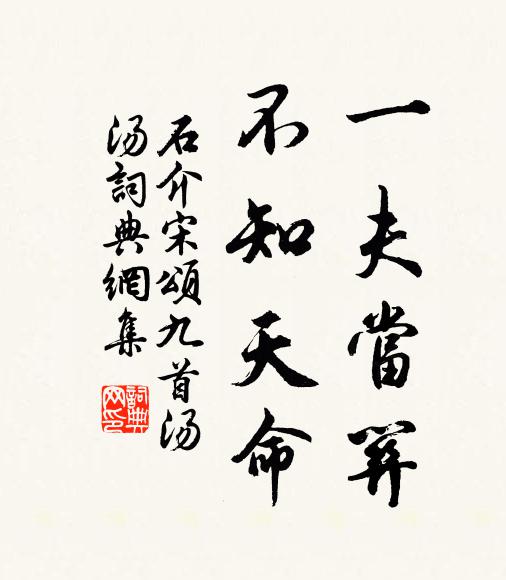 一夫當羿
不知天命
石介宋頌九首湯
湯詞典網集
詞典
网印